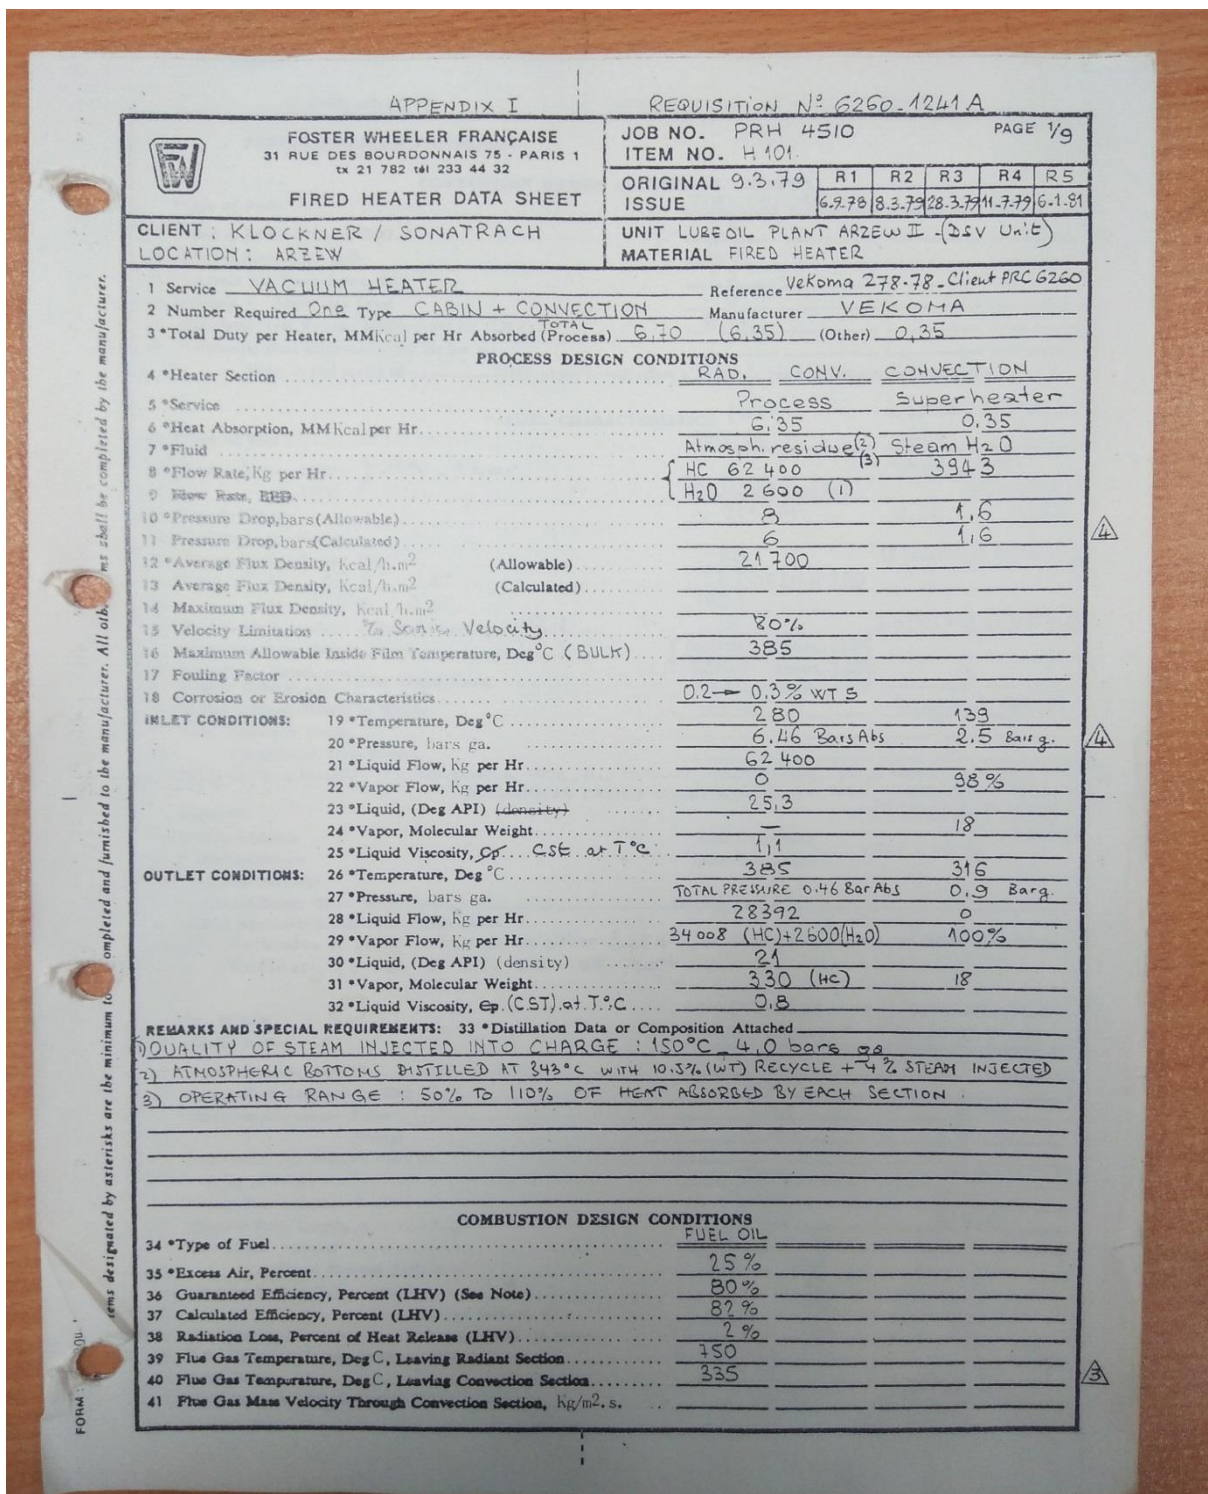 APPENDIX I
REQUISITION Nº 6260-1241 A
FW
FOSTER WHEELER FRANÇAISE
31 RUE DES BOURDONNAIS 75 - PARIS 1
tx 21 782 tél 233 44 32
FIRED HEATER DATA SHEET
JOB NO. PRH 4510 PAGE 1/9
ITEM NO. H 101.
ORIGINAL ISSUE 9.3.79 R1 R2 R3 R4 R5
6.9.78 8.3.79 28.3.79 11.7.79 6.1.81
CLIENT : KLOCKNER / SONATRACH
LOCATION : ARZEW
UNIT LUBEOIL PLANT ARZEW II - (DSV Unit)
MATERIAL FIRED HEATER
1 Service VACUUM HEATER Reference Vekoma 278-78 - Client PRC 6260
2 Number Required One Type CABIN + CONVECTION Manufacturer VEKOMA
3 *Total Duty per Heater, MMKcal per Hr Absorbed TOTAL (Process) 6,70 (6,35) (Other) 0,35
PROCESS DESIGN CONDITIONS
4 *Heater Section RAD. CONV. CONVECTION
5 *Service Process Superheater
6 *Heat Absorption, MMKcal per Hr. 6,35 0,35
7 *Fluid Atmosph. residue (2) Steam H2O
8 *Flow Rate, Kg per Hr HC 62 400 (3) 3943
9 Flow Rate, BPD H2O 2 600 (1)
10 *Pressure Drop, bars (Allowable) 8 1,6
11 Pressure Drop, bars (Calculated) 6 1,6
4
12 *Average Flux Density, Kcal/h.m2 (Allowable) 21 700
13 Average Flux Density, Kcal/h.m2 (Calculated)
14 Maximum Flux Density, Kcal/h.m2
15 Velocity Limitation % Sonic Velocity 80%
16 Maximum Allowable Inside Film Temperature, Deg°C (BULK) 385
17 Fouling Factor
18 Corrosion or Erosion Characteristics 0.2 → 0,3% WT S
INLET CONDITIONS: 19 *Temperature, Deg°C 280 139
20 *Pressure, bars ga. 6.46 Bars Abs 2.5 Bars g.
4
21 *Liquid Flow, Kg per Hr 62 400
22 *Vapor Flow, Kg per Hr 0 98%
23 *Liquid, (Deg API) (density) 25,3
24 *Vapor, Molecular Weight — 18
25 *Liquid Viscosity, Cp. CSt at T°C 1,1
OUTLET CONDITIONS: 26 *Temperature, Deg °C 385 316
27 *Pressure, bars ga. TOTAL PRESSURE 0.46 Bar Abs 0,9 Barg.
28 *Liquid Flow, Kg per Hr 28392 0
29 *Vapor Flow, Kg per Hr 34 008 (HC)+2600(H2O) 100%
30 *Liquid, (Deg API) (density) 21
31 *Vapor, Molecular Weight 330 (HC) 18
32 *Liquid Viscosity, Cp (CST) at T°C 0,8
REMARKS AND SPECIAL REQUIREMENTS: 33 *Distillation Data or Composition Attached
1) QUALITY OF STEAM INJECTED INTO CHARGE : 150°C _ 4,0 bars ga
2) ATMOSPHERIC BOTTOMS DISTILLED AT 343°C WITH 10.5% (WT) RECYCLE + 4% STEAM INJECTED
3) OPERATING RANGE : 50% TO 110% OF HEAT ABSORBED BY EACH SECTION.
COMBUSTION DESIGN CONDITIONS
34 *Type of Fuel FUEL OIL
35 *Excess Air, Percent 25%
36 Guaranteed Efficiency, Percent (LHV) (See Note) 80%
37 Calculated Efficiency, Percent (LHV) 82%
38 Radiation Loss, Percent of Heat Release (LHV) 2%
39 Flue Gas Temperature, Deg C, Leaving Radiant Section 750
40 Flue Gas Temperature, Deg C, Leaving Convection Section 335
3
41 Flue Gas Mass Velocity Through Convection Section, Kg/m2.s.
ems designated by asterisks are the minimum to ompleted and furnished to the manufacturer. All oth ms shall be completed by the manufacturer.
FORM